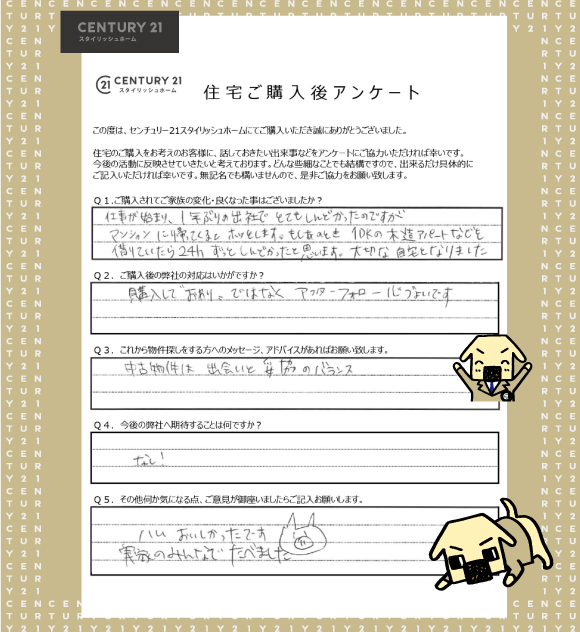 CENTURY 21
スタイリッシュホーム
CENTURY 21
スタイリッシュホーム
住宅ご購入後アンケート
この度は、センチュリー21スタイリッシュホームにてご購入いただき誠にありがとうございました。
住宅のご購入をお考えのお客様に、話しておきたい出来事などをアンケートにご協力いただければ幸いです。
今後の活動に反映させていきたいと考えております。どんな些細なことでも結構ですので、出来るだけ具体的に
ご記入いただければ幸いです。無記名でも構いませんので、是非ご協力をお願い致します。
Q1.ご購入されてご家族の変化・良くなった事はございましたか？
仕事が始まり、1年ぶりの出社で とてもしんどかったのですが
マンションに帰ってくると ホッとします。もしあのとき 1DKの木造アパートなどを
借りていたら24h ずっとしんどかったと思います。大切な自宅となりました
Q2．ご購入後の弊社の対応はいかがですか？
購入して"おわり。ではなく アフターフォロー 心づよいです
Q3．これから物件探しをする方へのメッセージ、アドバイスがあればお願い致します。
中古物件は 出会いと 妥協のバランス
Q4．今後の弊社へ期待することは何ですか？
なし！
Q5．その他何か気になる点、ご意見が御座いましたらご記入お願いします。
ハム おいしかったです
実家のみんなで たべました